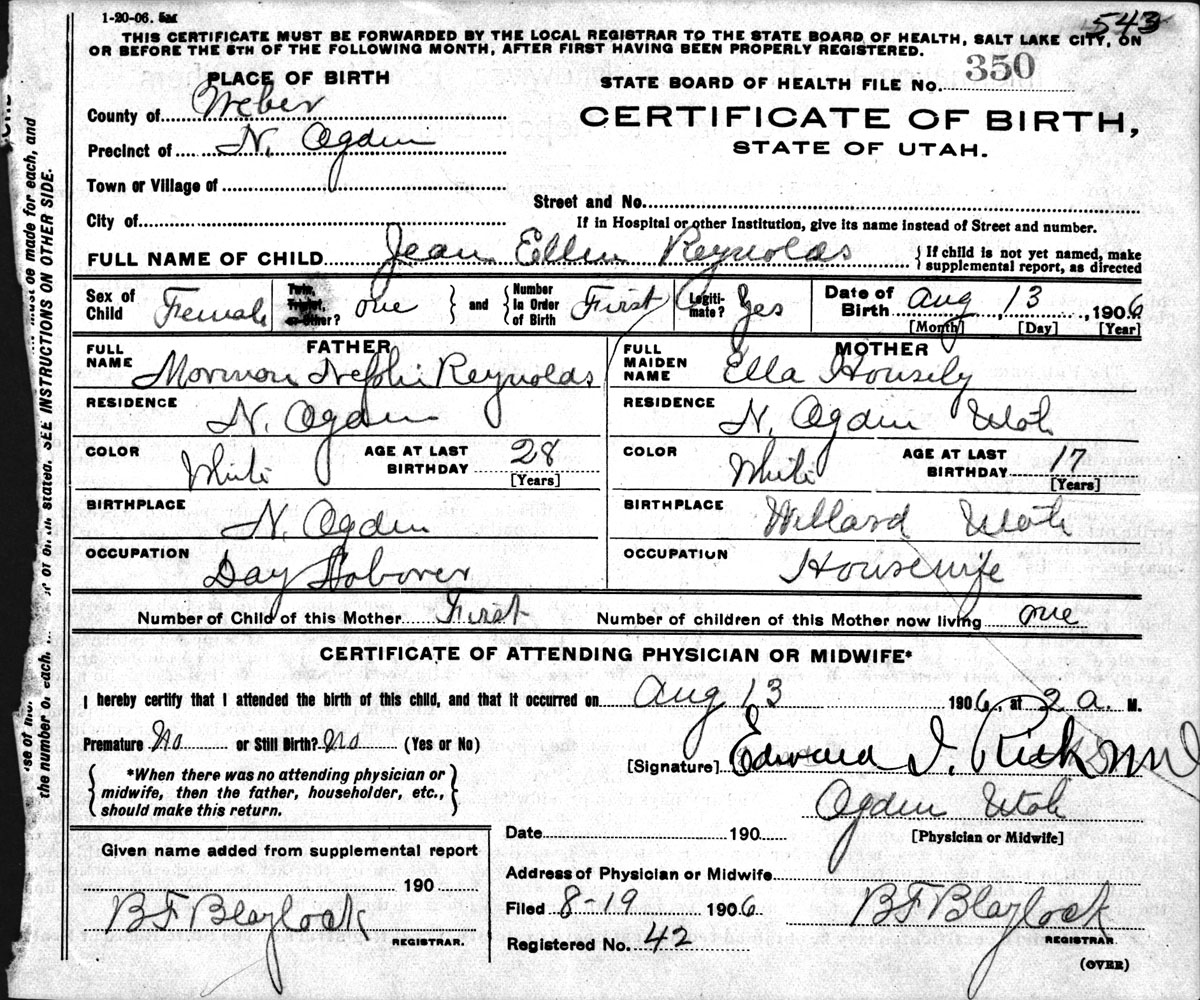 1-20-06. 5M
543
THIS CERTIFICATE MUST BE FORWARDED BY THE LOCAL REGISTRAR TO THE STATE BOARD OF HEALTH, SALT LAKE CITY, ON
OR BEFORE THE 5TH OF THE FOLLOWING MONTH, AFTER FIRST HAVING BEEN PROPERLY REGISTERED.
PLACE OF BIRTH
STATE BOARD OF HEALTH FILE No. 350
County of Weber
CERTIFICATE OF BIRTH,
Precinct of N. Ogden
STATE OF UTAH.
Town or Village of
Street and No.
City of
If in Hospital or other Institution, give its name instead of Street and number.
FULL NAME OF CHILD Jean Ellen Reynolds
{ If child is not yet named, make
supplemental report, as directed
Sex of Child Female
Twin, Triplet, or Other? one } and { Number in Order of Birth First
Legiti-mate? Yes
Date of Birth Aug 13, 1906
[Month] [Day] [Year]
FATHER
FULL NAME Mormon Nephi Reynolds
RESIDENCE N. Ogden
COLOR White AGE AT LAST BIRTHDAY 28
[Years]
BIRTHPLACE N. Ogden
OCCUPATION Day Laborer
MOTHER
FULL MAIDEN NAME Ella Housily
RESIDENCE N. Ogden Utah
COLOR White AGE AT LAST BIRTHDAY 17
[Years]
BIRTHPLACE Willard Utah
OCCUPATION Housewife
Number of Child of this Mother First Number of children of this Mother now living one
CERTIFICATE OF ATTENDING PHYSICIAN OR MIDWIFE*
I hereby certify that I attended the birth of this child, and that it occurred on Aug 13 1906, at 2 a. M.
Premature No or Still Birth? No (Yes or No)
[Signature] Edward I. Rich MD
{ *When there was no attending physician or
midwife, then the father, householder, etc.,
should make this return. }
Ogden Utah
[Physician or Midwife]
Date 190
Given name added from supplemental report
190
Address of Physician or Midwife
BF Blaylock
REGISTRAR.
Filed 8-19 1906
Registered No. 42
BF Blaylock
REGISTRAR.
(OVER)
must be made for each, and
the number of each,
stated. SEE INSTRUCTIONS ON OTHER SIDE.